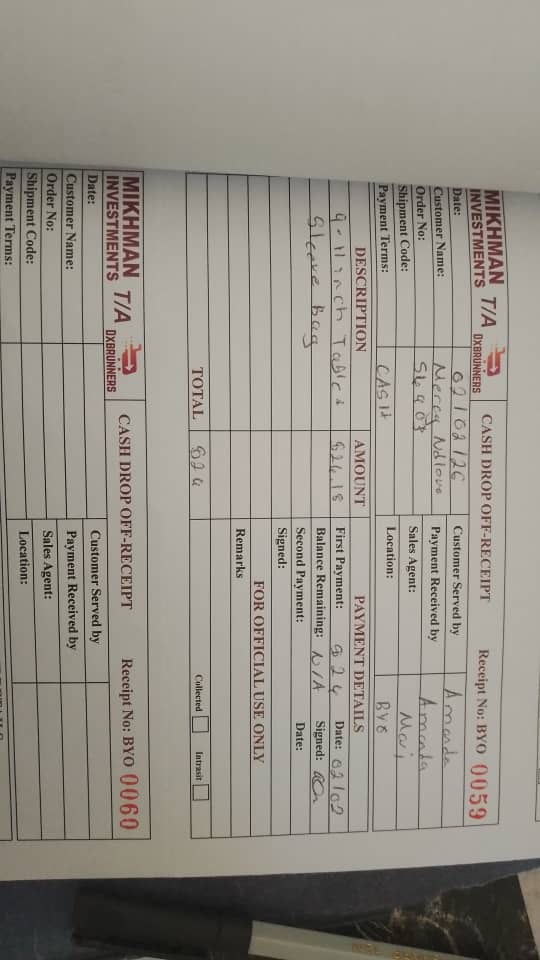 MIKHMAN INVESTMENTS T/A DXBRUNNERS CASH DROP OFF-RECEIPT Receipt No: BYO 0059
Date: 02/02/26 Customer Served by Amanda
Customer Name: Mercy Ndlovu Payment Received by Amanda
Order No: Sales Agent:
Shipment Code: Location: BYO
Payment Terms: CASH
DESCRIPTION AMOUNT PAYMENT DETAILS
9-11 inch Tablet $24.18 First Payment: $24 Date: 02/02
Sleeve Bag Balance Remaining: N/A Signed:
Second Payment: Date:
Signed:
FOR OFFICIAL USE ONLY
Remarks
TOTAL $24 Collected Intrasit
MIKHMAN INVESTMENTS T/A DXBRUNNERS CASH DROP OFF-RECEIPT Receipt No: BYO 0060
Date: Customer Served by
Customer Name: Payment Received by
Order No: Sales Agent:
Shipment Code: Location:
Payment Terms: